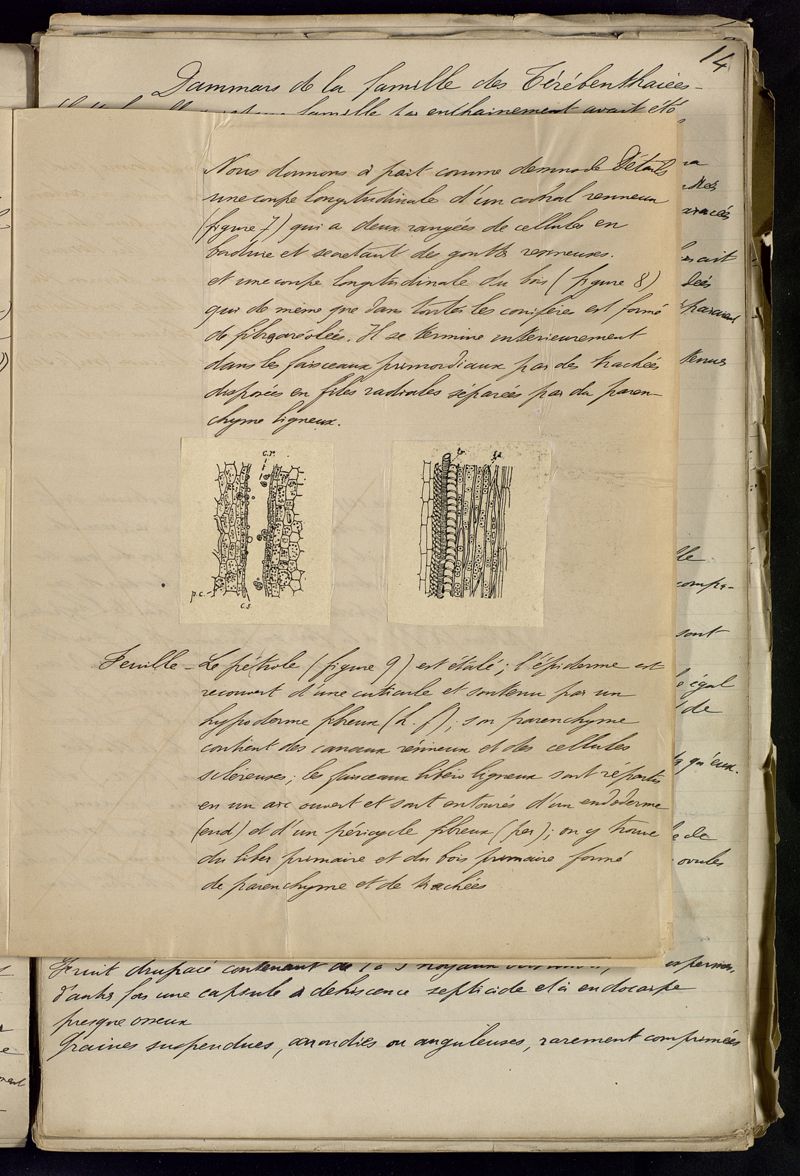 14
Dammars de la famille des Térébenthacées -
famille par enthainement avait été
Nous donnons à part comme demnode Détails
une coupe longitudinale d'un canal résineux
(figure 7) qui a deux rangées de cellules en
bordure et secretant des goutts résineuses.
et une coupe longitudinale du bois (figure 8)
qui de même que dans toutes les conifères est formé
de fibraréolée. Il se termine interieurement
dans les faisceaux primordiaux par des trachées
disposées en files radiales séparées par du paren-
chyme ligneux.
c.r.
p.c.
c.s.
Feuille - Le pétiole (figure 9) est étalé; l'épiderme est
recouvert d'une cuticule et soutenu par un
hypoderme fibreux (h.f); son parenchyme
contient des canaux résineux et des cellules
scléreuses; les faisceaux libéro ligneux sont répartis
en un arc ouvert et sont entourés d'un endoderme
(end) et d'un péricycle fibreux (per); on y trouve
du liber primaire et du bois primaire formé
de parenchyme et de trachées
compo-
sont
égal
de
qu'eux.
de
ovules
Fruit drupacé contenant de 1 à 5 noyaux
d'autres fois une capsule à dehiscence septicide et à endocarpe
presque osseux
Graines suspendues, arrondies ou anguleuses, rarement comprimées